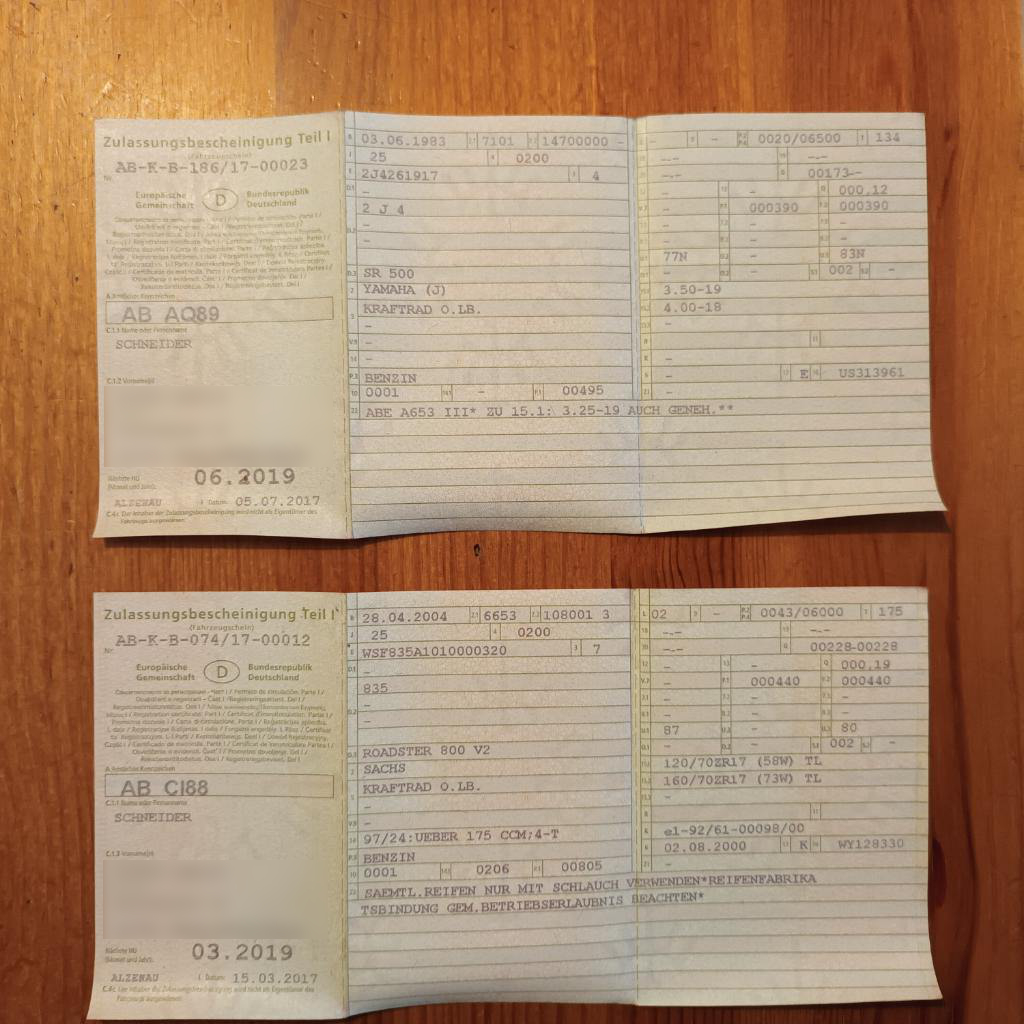 Zulassungsbescheinigung Teil I
(Fahrzeugschein)
AB-K-B-186/17-00023
Nr.
Europäische Gemeinschaft D Bundesrepublik Deutschland
AB AQ89
C.1.1 Name oder Firmenname
SCHNEIDER
C.1.2 Vorname(n)
Nächste HU (Monat und Jahr): 06.2019
ALZENAU Datum: 05.07.2017
C.4c Der Inhaber der Zulassungsbescheinigung wird nicht als Eigentümer des
Fahrzeugs ausgewiesen.
03.06.1983 7101 14700000 -
25 0200
2J4261917 4
-
2 J 4
-
-
SR 500
YAMAHA (J)
KRAFTRAD O.LB.
-
-
BENZIN
0001 - 00495
ABE A653 III* ZU 15.1: 3.25-19 AUCH GENEH.**
- - 0020/06500 134
-.- -.-
-.- 00173-
- - 000,12
- 000390 000390
- - -
- - -
77N - 83N
- - 002 -
3.50-19
4.00-18
-
-
-
- E US313961
-
Zulassungsbescheinigung Teil I
(Fahrzeugschein)
AB-K-B-074/17-00012
Nr.
Europäische Gemeinschaft D Bundesrepublik Deutschland
AB CI88
C.1.1 Name oder Firmenname
SCHNEIDER
Nächste HU (Monat und Jahr): 03.2019
ALZENAU Datum: 15.03.2017
C.4c Der Inhaber der Zulassungsbescheinigung wird nicht als Eigentümer des
Fahrzeugs ausgewiesen.
28.04.2004 6653 108001 3
25 0200
WSF835A1010000320 7
-
835
-
-
ROADSTER 800 V2
SACHS
KRAFTRAD O.LB.
-
-
97/24:UEBER 175 CCM;4-T
BENZIN
0001 0206 00805
SAEMTL.REIFEN NUR MIT SCHLAUCH VERWENDEN*REIFENFABRIKA
TSBINDUNG GEM.BETRIEBSERLAUBNIS BEACHTEN*
02 - 0043/06000 175
-.- -.-
-.- 00228-00228
- - 000,19
- 000440 000440
- - -
- - -
87 - 80
- - 002 -
120/70ZR17 (58W) TL
160/70ZR17 (73W) TL
-
-
e1-92/61-00098/00
02.08.2000 K WY128330
-